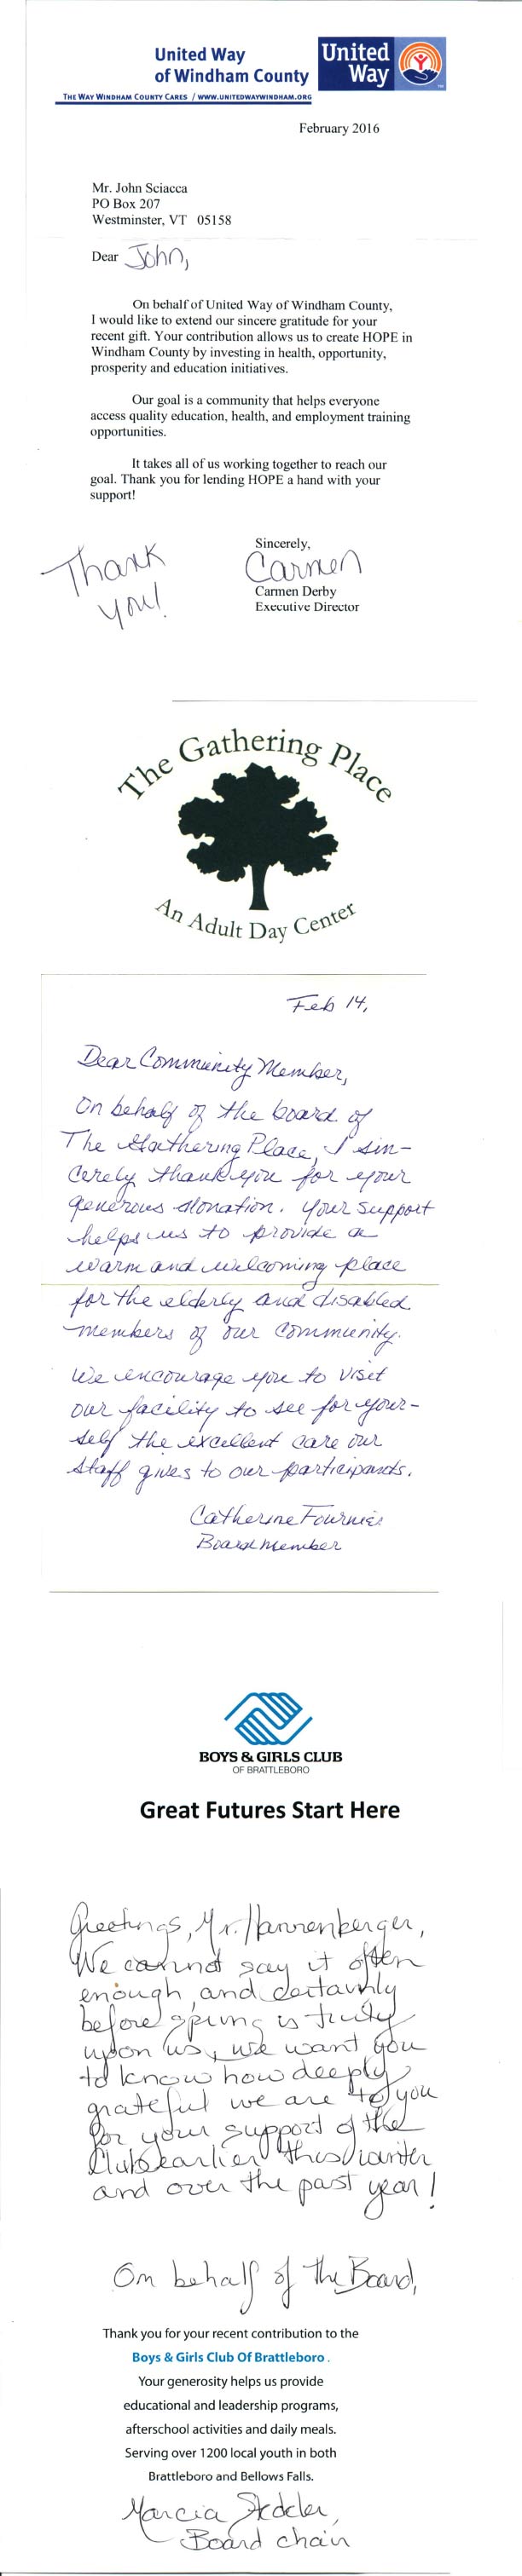 United Way
of Windham County
United
Way
THE WAY WINDHAM COUNTY CARES / WWW.UNITEDWAYWINDHAM.ORG
February 2016
Mr. John Sciacca
PO Box 207
Westminster, VT 05158
Dear John,
On behalf of United Way of Windham County,
I would like to extend our sincere gratitude for your
recent gift. Your contribution allows us to create HOPE in
Windham County by investing in health, opportunity,
prosperity and education initiatives.
Our goal is a community that helps everyone
access quality education, health, and employment training
opportunities.
It takes all of us working together to reach our
goal. Thank you for lending HOPE a hand with your
support!
Sincerely,
Thank
you!
Carmen
Carmen Derby
Executive Director
The Gathering Place
An Adult Day Center
Feb 14,
Dear Community Member,
On behalf of the board of
The Gathering Place, I sin-
cerely thank you for your
generous donation. Your support
helps us to provide a
warm and welcoming place
for the elderly and disabled
members of our community.
We encourage you to visit
our facility to see for your-
self the excellent care our
staff gives to our participants.
Catherine Fournier
Board member
BOYS & GIRLS CLUB
OF BRATTLEBORO
Great Futures Start Here
Greetings, Mr.
We cannot say it often
enough, and certainly
before spring is truly
upon us, we want you
to know how deeply
grateful we are to you
for your support of the
Club earlier this winter
and over the past year!
On behalf of the Board,
Thank you for your recent contribution to the
Boys & Girls Club Of Brattleboro .
Your generosity helps us provide
educational and leadership programs,
afterschool activities and daily meals.
Serving over 1200 local youth in both
Brattleboro and Bellows Falls.
Marcia
Board chair